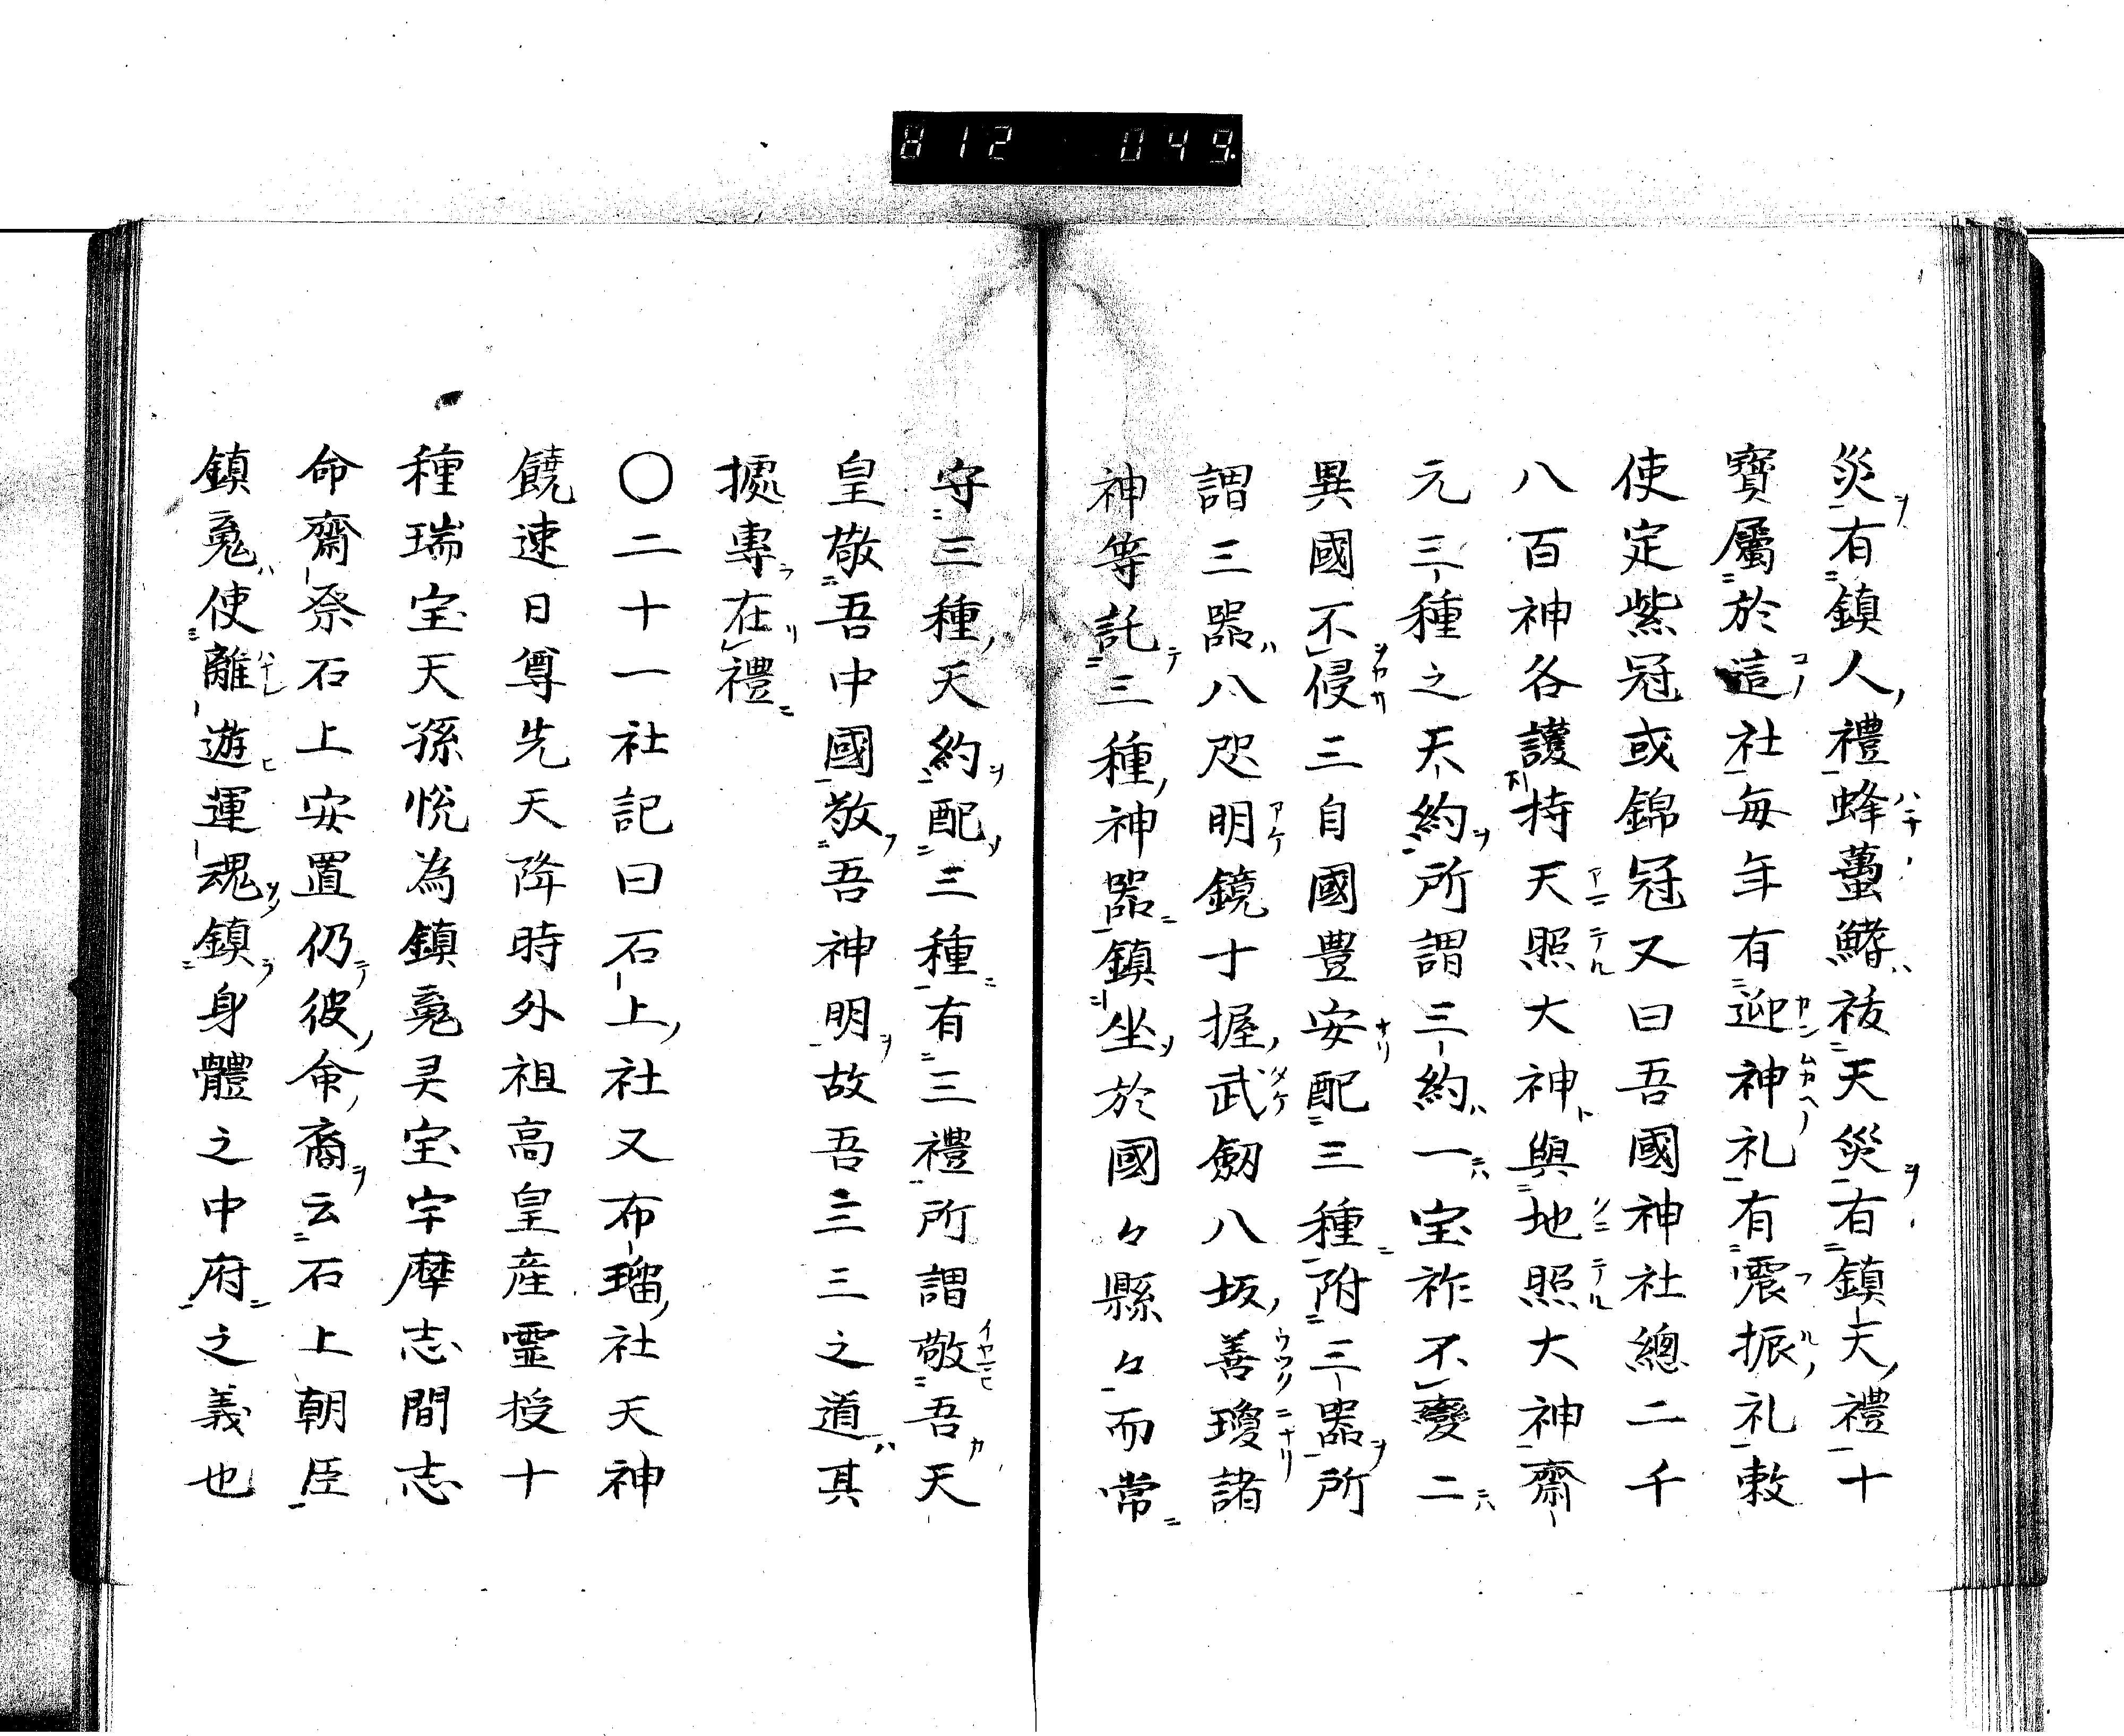 812 049.
災有鎮人禮蜂蠆鰭祓天災有鎮天禮十
寶屬於這社毎年有迎神礼有震振礼敕
使定紫冠或錦冠又曰吾國神社總二千
八百神各護持天照大神與地照大神齋
元三種之天約所謂三約一宝祚不變二
異國不侵三自國豊安配三種附三器所
謂三器八咫明鏡十握武劔八坂善瓊諸
神等託三種神器鎮坐於國々縣々而常
守三種天約配三種有三禮所謂敬吾天
皇敬吾中國敬吾神明故吾三三之道其
據專在禮
〇二十一社記曰石上社又布瑠社天神
饒速日尊先天降時外祖高皇産霊授十
種瑞宝天孫悦為鎮䰟灵宝宇摩志間志
命齋祭石上安置仍彼命裔云石上朝臣
鎮䰟使離遊運魂鎮身體之中府之義也